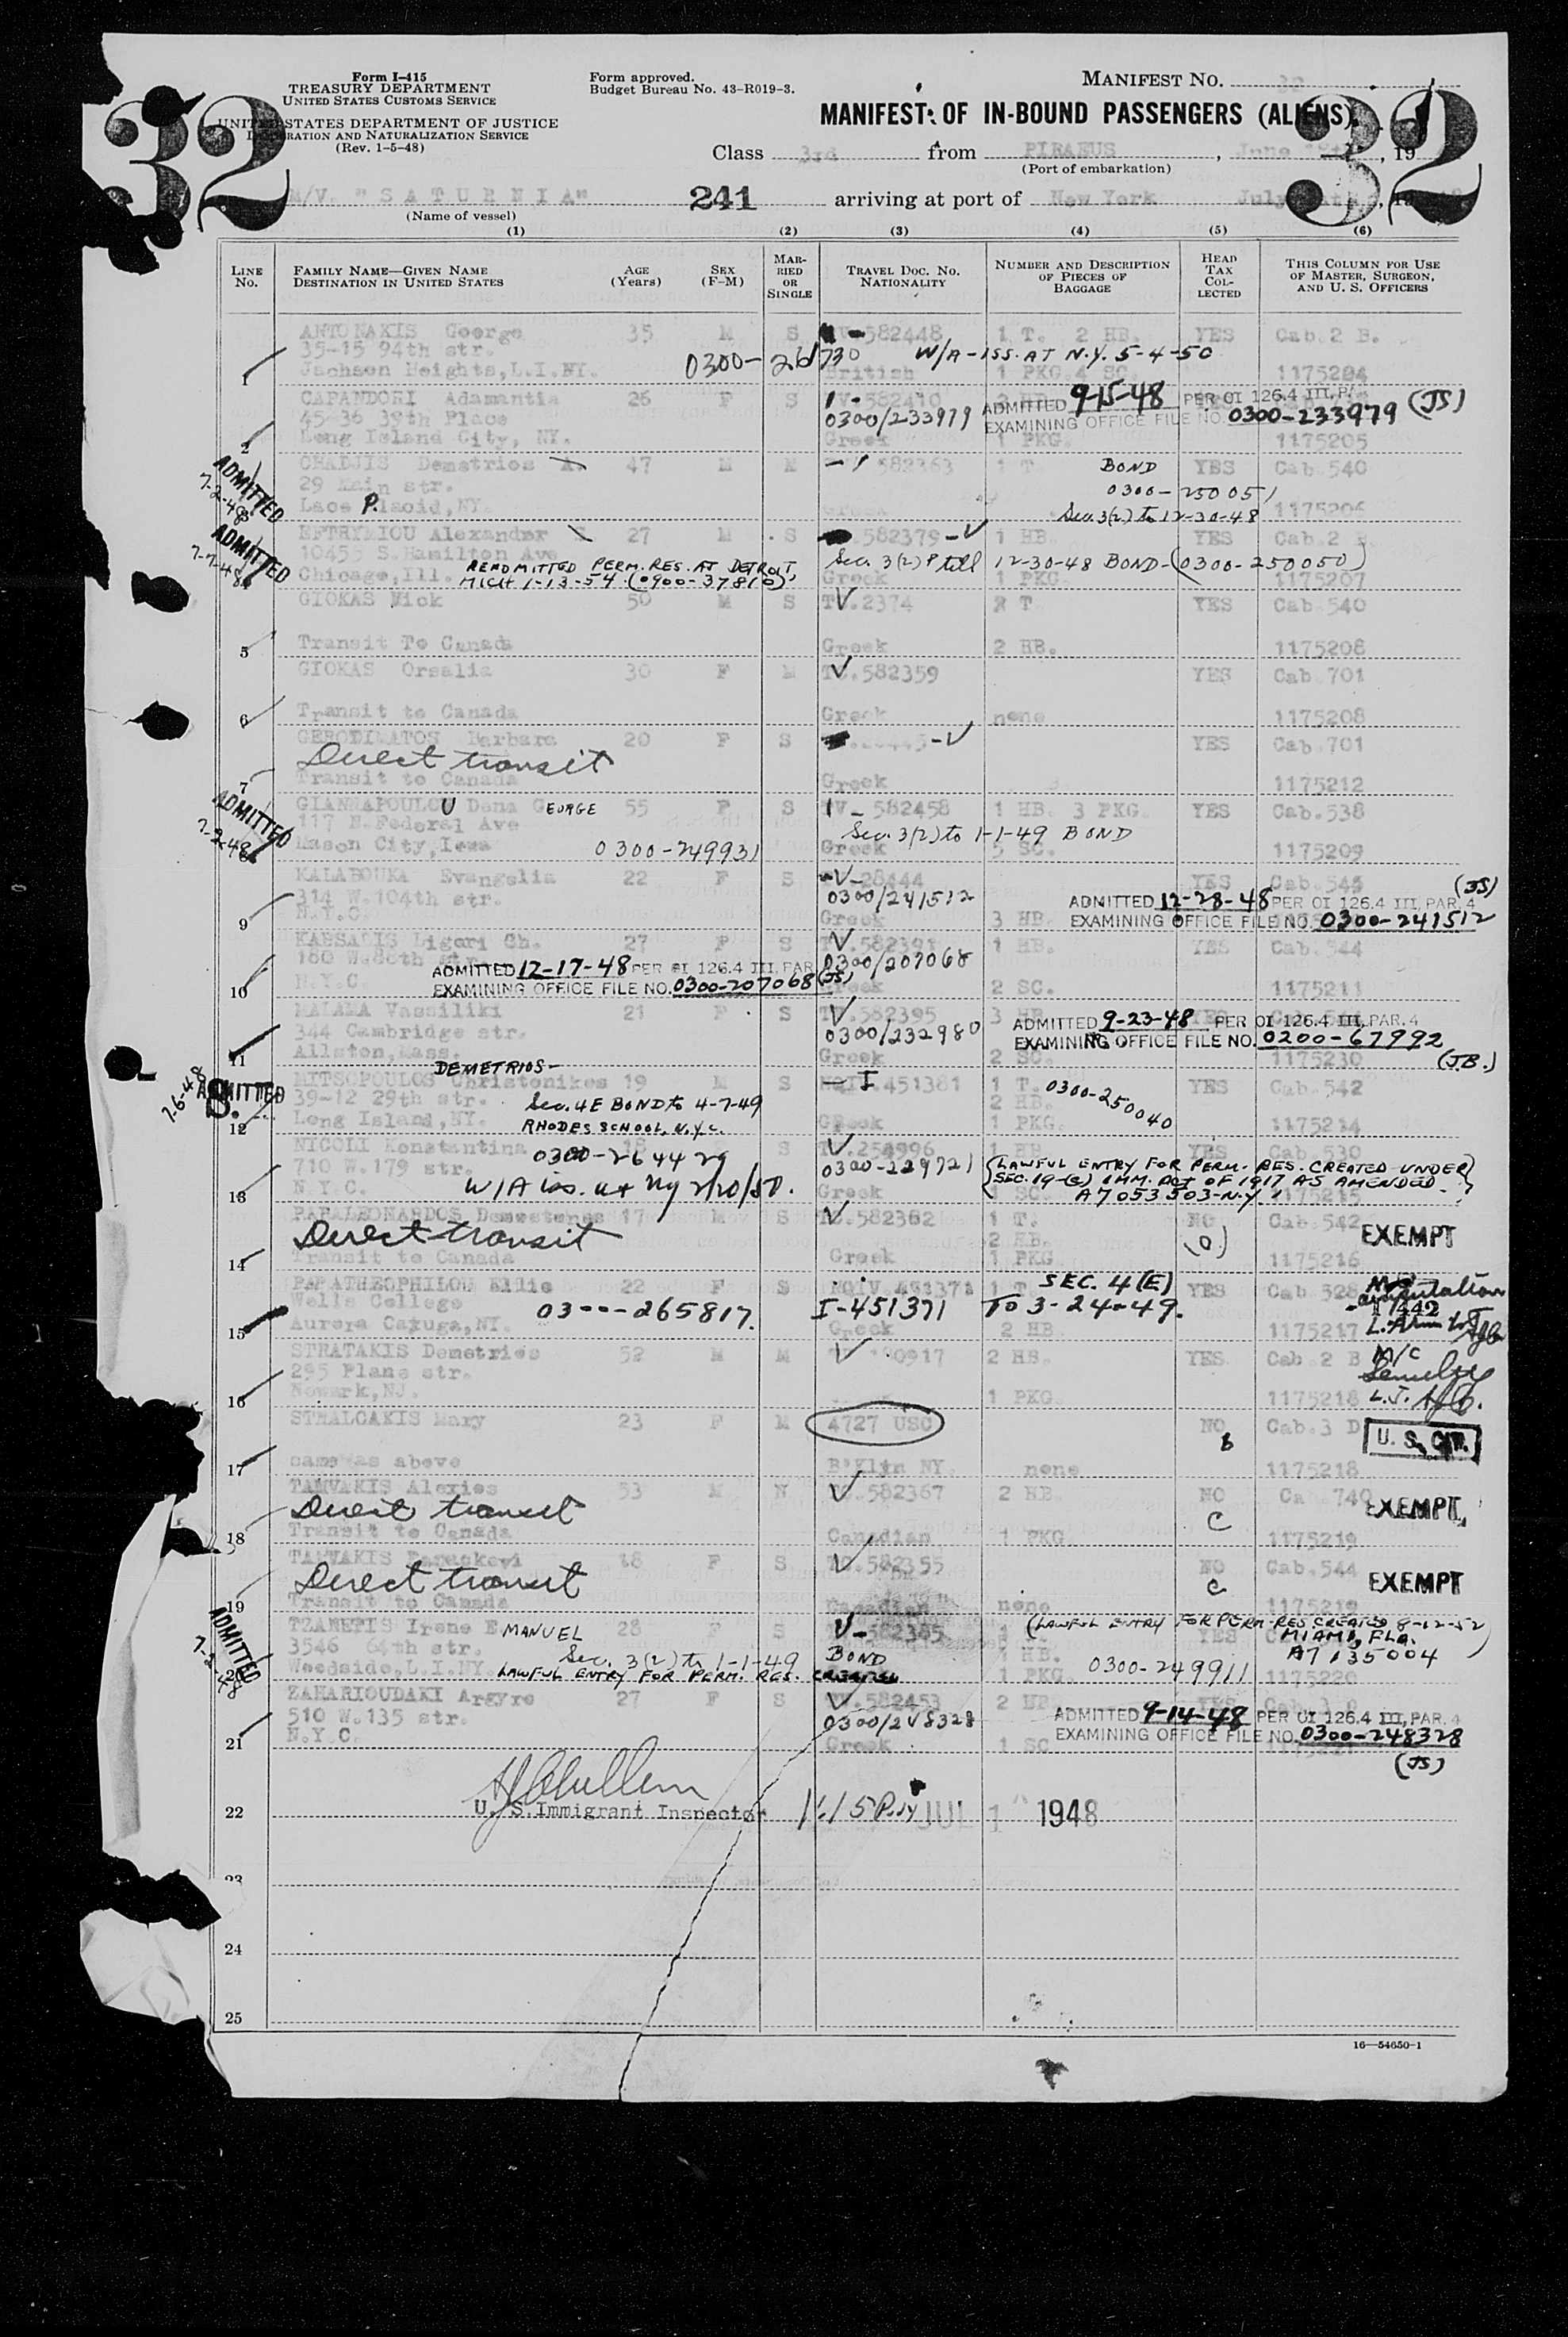 32
32
Form I-415
TREASURY DEPARTMENT
UNITED STATES CUSTOMS SERVICE
UNITED STATES DEPARTMENT OF JUSTICE
IMMIGRATION AND NATURALIZATION SERVICE
(Rev. 1-5-48)
Form approved.
Budget Bureau No. 43-R019-3.
MANIFEST NO. 32
MANIFEST OF IN-BOUND PASSENGERS (ALIENS)
Class 3rd from PIRAEUS, June , 19
(Port of embarkation)
M/V. "SATURNIA" 241 arriving at port of New York July
(Name of vessel)
(1) (2) (3) (4) (5) (6)
LINE No. FAMILY NAME—GIVEN NAME DESTINATION IN UNITED STATES AGE (Years) SEX (F-M) MARRIED OR SINGLE TRAVEL DOC. NO. NATIONALITY NUMBER AND DESCRIPTION OF PIECES OF BAGGAGE HEAD TAX COLLECTED THIS COLUMN FOR USE OF MASTER, SURGEON, AND U. S. OFFICERS
ANTONAKIS George 35 M S 582448 1 T. 2 HB. YES Cab.2 B.
35-15 94th str. 0300- 730 W/A-ISS. AT N.Y. 5-4-50
1 Jachson Heights,L.I.NY. British 1 PKG 4 SC. 1175204
CAPANDORI Adamantia 26 F S 582410 ADMITTED 9-15-48 PER OI 126.4 III, P.
45-36 39th Place 0300/233979 EXAMINING OFFICE FILE NO. 0300-233979 (JS)
2 Long Island City, NY. Greek 1 PKG. 1175205
CHADJIS Demetrios A. 47 M M 582363 1 T BOND YES Cab.540
ADMITTED 7-2-48 29 Main str. 0300-250051
3 Lace Placid,NY. Greek Sec. 3(2) to 12-30-48 1175206
EFTRYMIOU Alexander 27 M S 582379 1 HB. YES Cab.2
ADMITTED 7-7-48 10455 S.Hamilton Ave READMITTED PERM. RES. AT DETROIT, Sec. 3(2) till 12-30-48 BOND-(0300-250050)
4 Chicago,Ill. MICH 1-13-54 (0900-37810) Greek 1 PKG 1175207
GIOKAS Nick 50 M S 2374 T YES Cab.540
5 Transit To Canada Greek 2 HB. 1175208
GIOKAS Orsalia 30 F M 582359 YES Cab.701
6 Transit to Canada Greek none 1175208
GERODIMATOS Barbara 20 F S YES Cab.701
Direct transit
7 Transit to Canada Greek 1175212
GIANNAPOULOU Dena GEORGE 55 F S 582458 1 HB. 3 PKG YES Cab.538
ADMITTED 7-2-48 117 N.Federal Ave Sec. 3(2) to 1-1-49 BOND
8 Mason City,Iowa 0300-249931 Greek 5 SC. 1175209
KALABOUKA Evangelia 22 F S 28444 YES Cab.545 (JS)
314 W.104th str. 0300/241512 ADMITTED 12-28-48 PER OI 126.4 III, PAR. 4
9 N.Y.C. Greek 3 HB. EXAMINING OFFICE FILE NO. 0300-241512
KARSACIS Ligori Ch. 27 F S 582391 1 HB. YES Cab.544
160 W.86th str. ADMITTED 12-17-48 PER OI 126.4 III, PAR 0300/207068
10 N.Y.C. EXAMINING OFFICE FILE NO. 0300-207068 (JS) Greek 2 SC. 1175211
MALAMA Vassiliki 21 F S 582395 3 HB. YES
344 Cambridge str. 0300/232980 ADMITTED 9-23-48 PER OI 126.4 III, PAR. 4
11 Allston,Mass. Greek 2 SC. EXAMINING OFFICE FILE NO. 0200-67992 1175230 (J.B.)
DEMETRIOS-
7-6-48 ADMITTED MITSOPOULOS Christonikos 19 M S I 451381 1 T. 0300-250040 YES Cab.542
S. 39-12 29th str. Sec. 4E BOND to 4-7-49 2 HB.
12 Long Island,NY. RHODES SCHOOL, N.Y.C. Greek 1 PKG. 1175214
NICOLI Konstantina 18 S 254996 1 HB YES Cab.530
710 W.179 str. 0300-264429 0300-229721 (LAWFUL ENTRY FOR PERM. RES. CREATED UNDER
13 N.Y.C. W/A iss. at NY 2/20/50. Greek 1 SC. SEC. 19-(c) IMM. ACT OF 1917 AS AMENDED. 1175215
A7053503-N.Y.
PAPALEONARDOS 17 M S 582362 1 T. NO Cab.542
Direct transit 2 HB. EXEMPT
14 Transit to Canada Greek 1 PKG 1175216
PAPATHEOPHILOU Ellie 22 F S NQIV.451371 1 T. SEC. 4(E) YES Cab 528
Wells College 0300-265817. I-451371 TO 3-24-49. 442
15 Aurora Cayuga,NY. Greek 2 HB 1175217
STRATAKIS Demetrios 52 M M 0917 2 HS. YES Cab 2 B M/C
295 Plane str. Senility
16 Newark,NJ. 1 PKG. 1175218 L.J.
STRALCAKIS Mary 23 F M 4727 USC NO Cab.3 D
U. S. CIT.
17 same as above B'Klyn NY. none 1175218
TAMVAKIS Alexios 53 M M 582367 2 HB NO Ca 740
Direct transit C EXEMPT
18 Transit to Canada Canadian 1 PKG 1175219
TAMVAKIS Paraskevi 18 F S 582355 NO Cab.544
Direct transit C EXEMPT
19 Transit to Canada Canadian none 1175219
TZANETIS Irene EMANUEL 28 F S 582385 (LAWFUL ENTRY FOR PERM. RES. CREATED 8-12-52
ADMITTED 7-2-48 3546 64th str. Sec. 3(2) to 1-1-49 BOND HB. YES MIAMI, FLA.
20 Woodside,L.I.NY. LAWFUL ENTRY FOR PERM. RES. CREATED 1 PKG. 0300-249911 A7135004) 1175220
ZAHARIOUDAKI Argyro 27 F S 582453 2 HB YES
510 W.135 str. 0300/248328 ADMITTED 9-14-48 PER OI 126.4 III, PAR. 4
21 N.Y.C. Greek 1 SC EXAMINING OFFICE FILE NO. 0300-248328
(JS)
22 U. S. Immigrant Inspector JUL 1 1948
23
24
25
16—54650-1